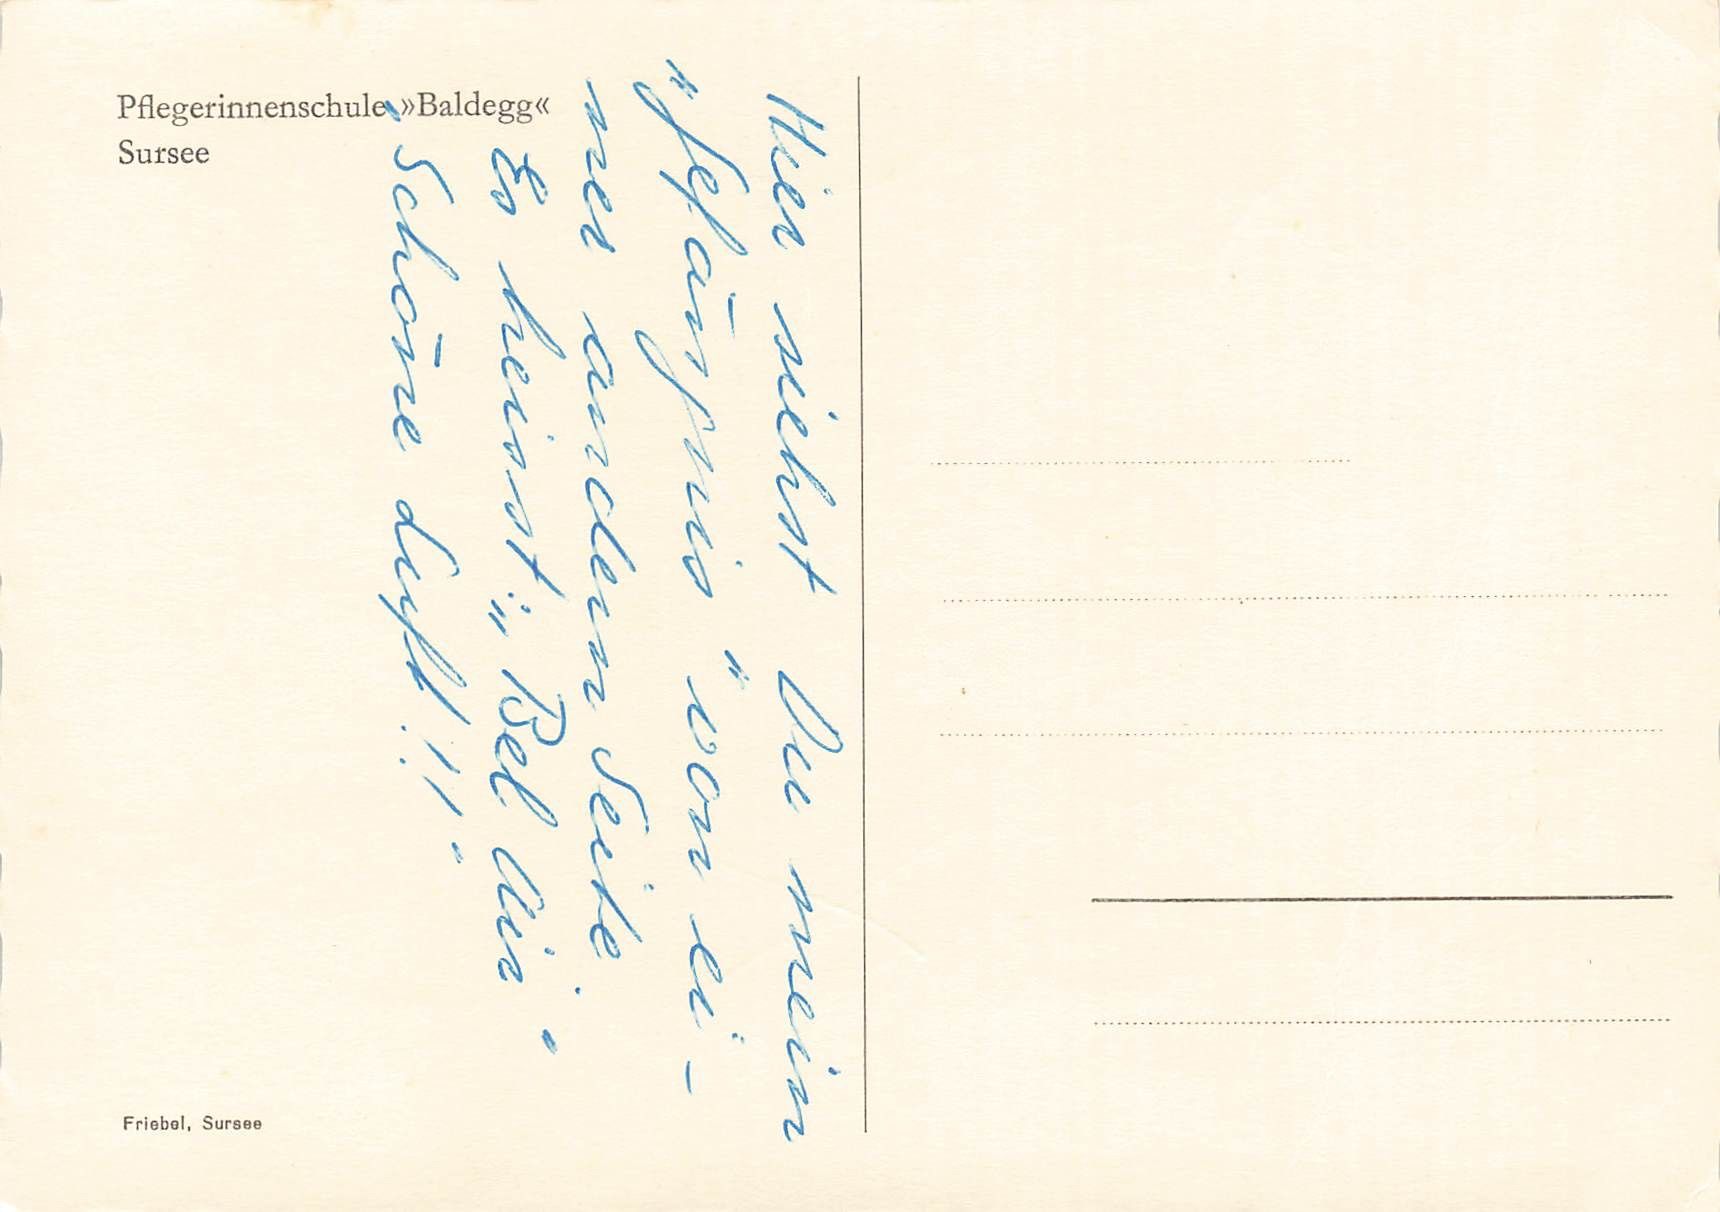 Pflegerinnenschule »Baldegg«
Sursee
Hier siehst Du mein
"Gefängnis" von ei-
ner andern Seite.
Es heisst: "Bel Air"
Schöne Luft!!!
Friebel, Sursee